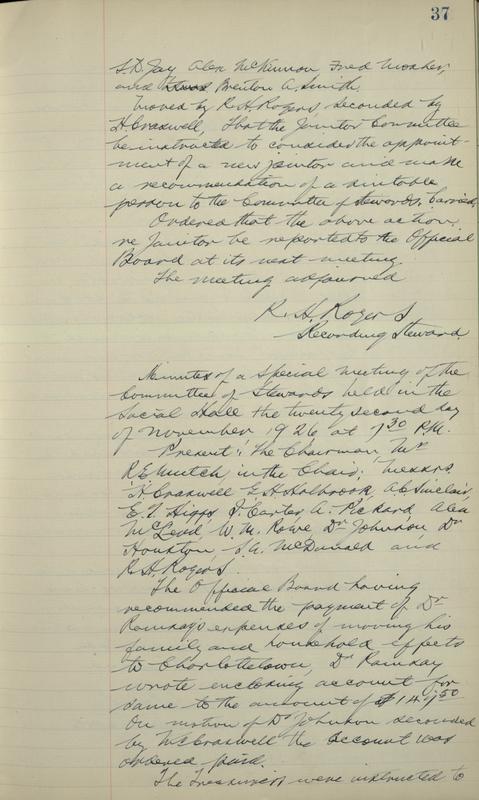 37
L.D. Jay Alex McKinnon Fred Mosher,
and Brenton A. Smith.
Moved by R.H. Rogers, seconded by
H. Craswell, that the Janitor Committee
be instructed to consider the appoint-
ment of a new janitor and make
a recommendation of a suitable
person to the Committee of Stewards. Carried.
Ordered that the above action
re Janitor be reported to the Official
Board at its next meeting.
The meeting adjourned
R. H. Rogers
Recording Steward.
Minutes of a special meeting of the
Committee of Stewards held in the
Social Hall the twenty second day
of November 1926 at 7³⁰ P.M.
Present: The Chairman, Mr
R.E. Mutch in the Chair; Messrs
H Craswell G.H. Holbrook, A.C. Sinclair,
E.T. Higgs J. Carter A. Pickard Alex
McLeod, W.M. Rowe Dr Johnson Dr
Houston A. McDonald and
R.H. Rogers.
The Official Board having
recommended the payment of Dr
Ramsay's expenses of moving his
family and household effects
to Charlottetown, Dr Ramsay
wrote enclosing account for
same to the amount of $147⁵⁰
On motion of Dr Johnson seconded
by Mr Craswell the account was
ordered paid.
The Treasurers were instructed to